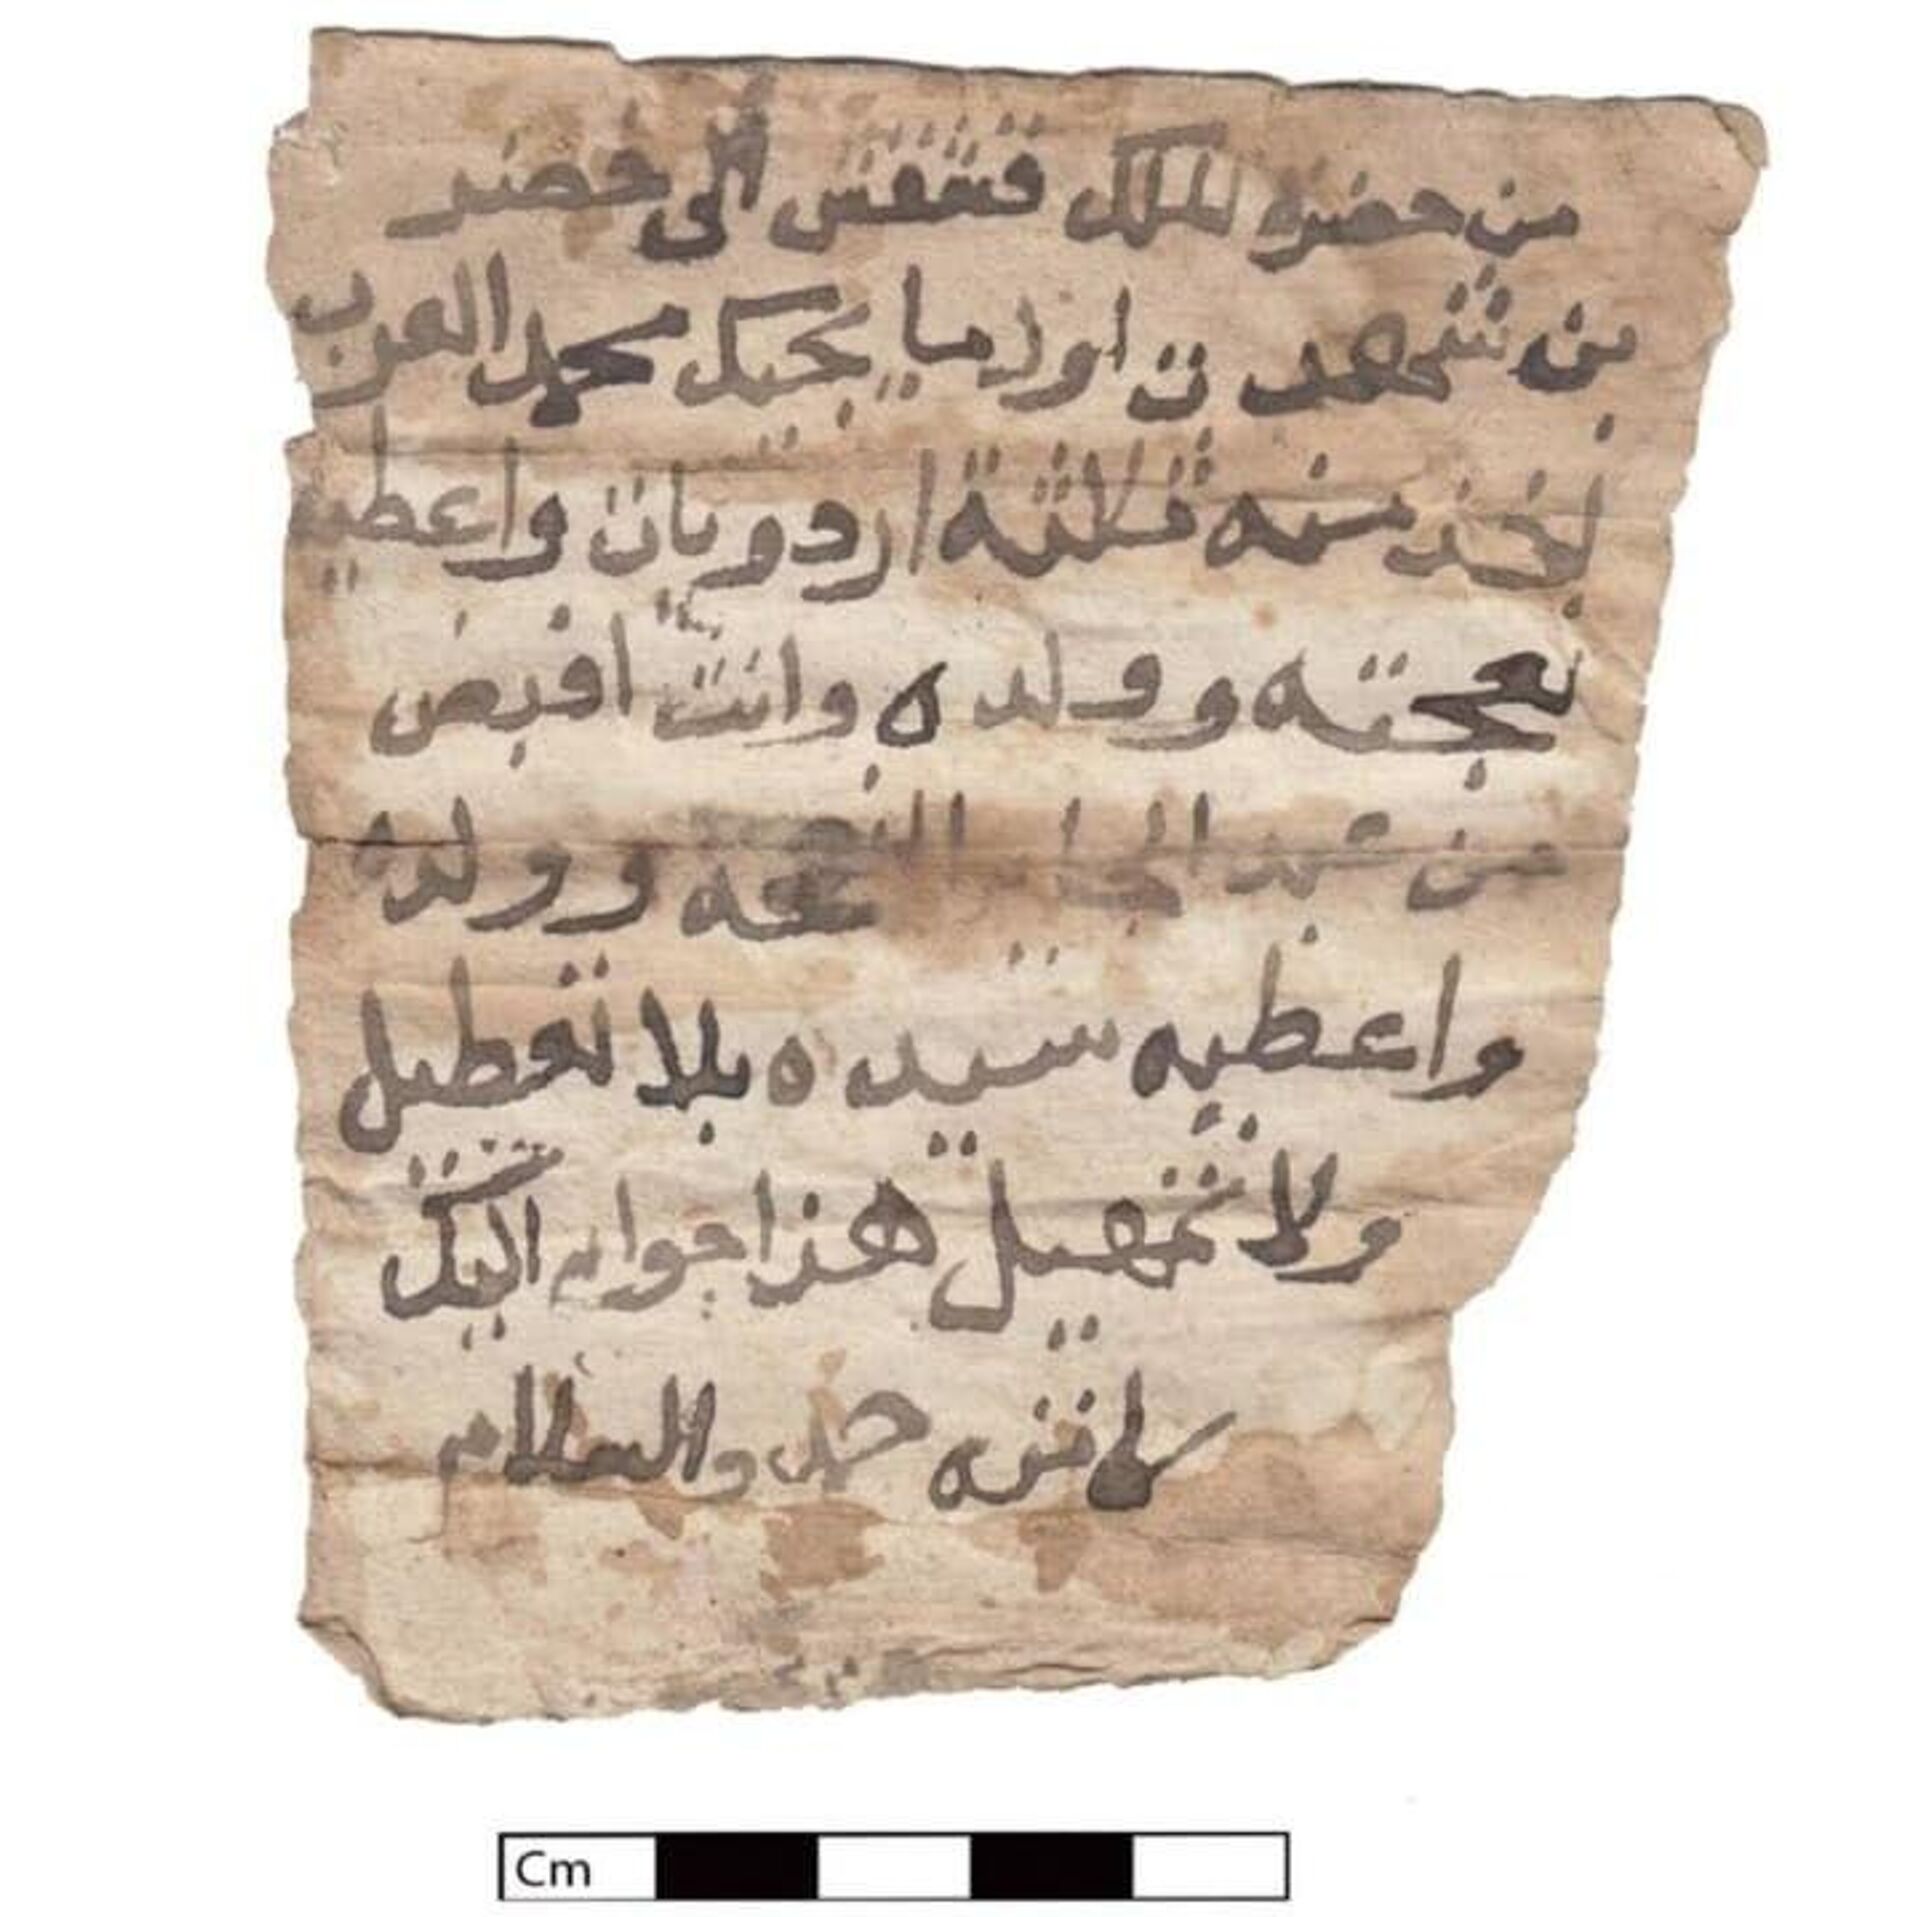 من حضرة الملك قشقش الى خضر
بن شهد ت اورد ما يجيك محمد العرب
اخذ منه ثلاثة اردويات واعطيه
نعجته وولده وانت اقبض
من عبد الجابر النعجه وولده
واعطيه سيده بلا تعطيل
ولا تمهيل هذا جواب اليك
كاتبه حمد والسلام
Cm